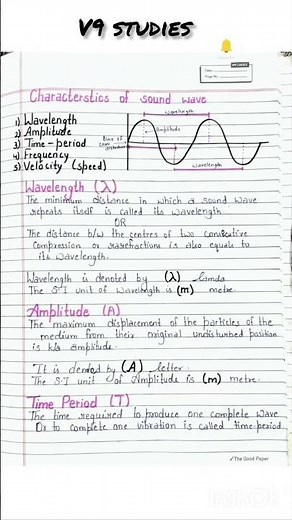 V9 studies
Characterstics of sound wave
1) Wavelength
2) Amplitude
3) Time - period
4) Frequency
5) Velocity (speed)
wavelength
Amplitude
Line of
zero
disturbance
wavelength
Wavelength (λ)
The minimum distance in which a sound wave
repeats itself is called its wavelength.
OR
The distance b/w the centres of two consecutive
compression or rarefractions is also equals to
its wavelength.
Wavelength is denoted by (λ) lamda
The S.I unit of wavelength is (m) metre.
Amplitude (A)
The maximum displacement of the particles of the
medium from their original undisturbed position
is k/a amplitude.
It is denoted by (A) letter.
The S.I unit of Amplitude is (m) metre.
Time Period (T)
The time required to produce one complete wave
Or to complete one vibration is called time-period
The Good Paper